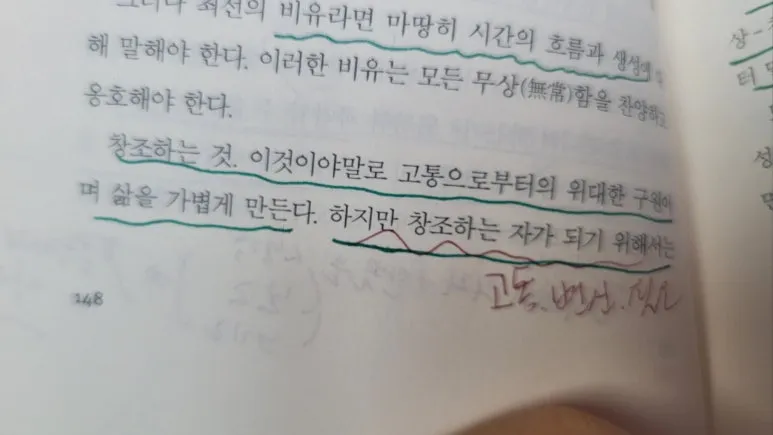 그러나 최선의 비유라면 마땅히 시간의 흐름과 생성에
해 말해야 한다. 이러한 비유는 모든 무상(無常)함을 찬양하고
옹호해야 한다.
창조하는 것. 이것이야말로 고통으로부터의 위대한 구원이
며 삶을 가볍게 만든다. 하지만 창조하는 자가 되기 위해서는
고통. 변신.
148
상-
터
성
만